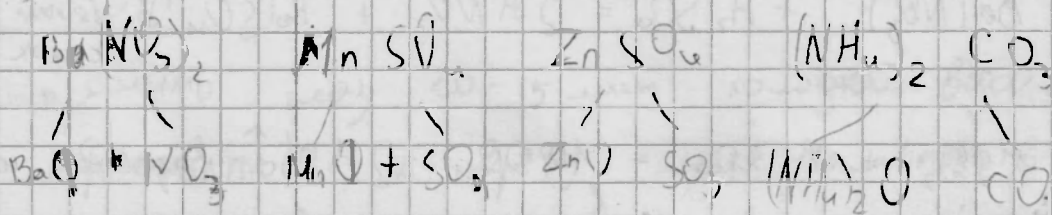 Ba(NO3)2 MnSO4 ZnSO4 (NH4)2 CO3
BaO + NO3 MnO + SO3 ZnO SO3 (NH4)2O CO